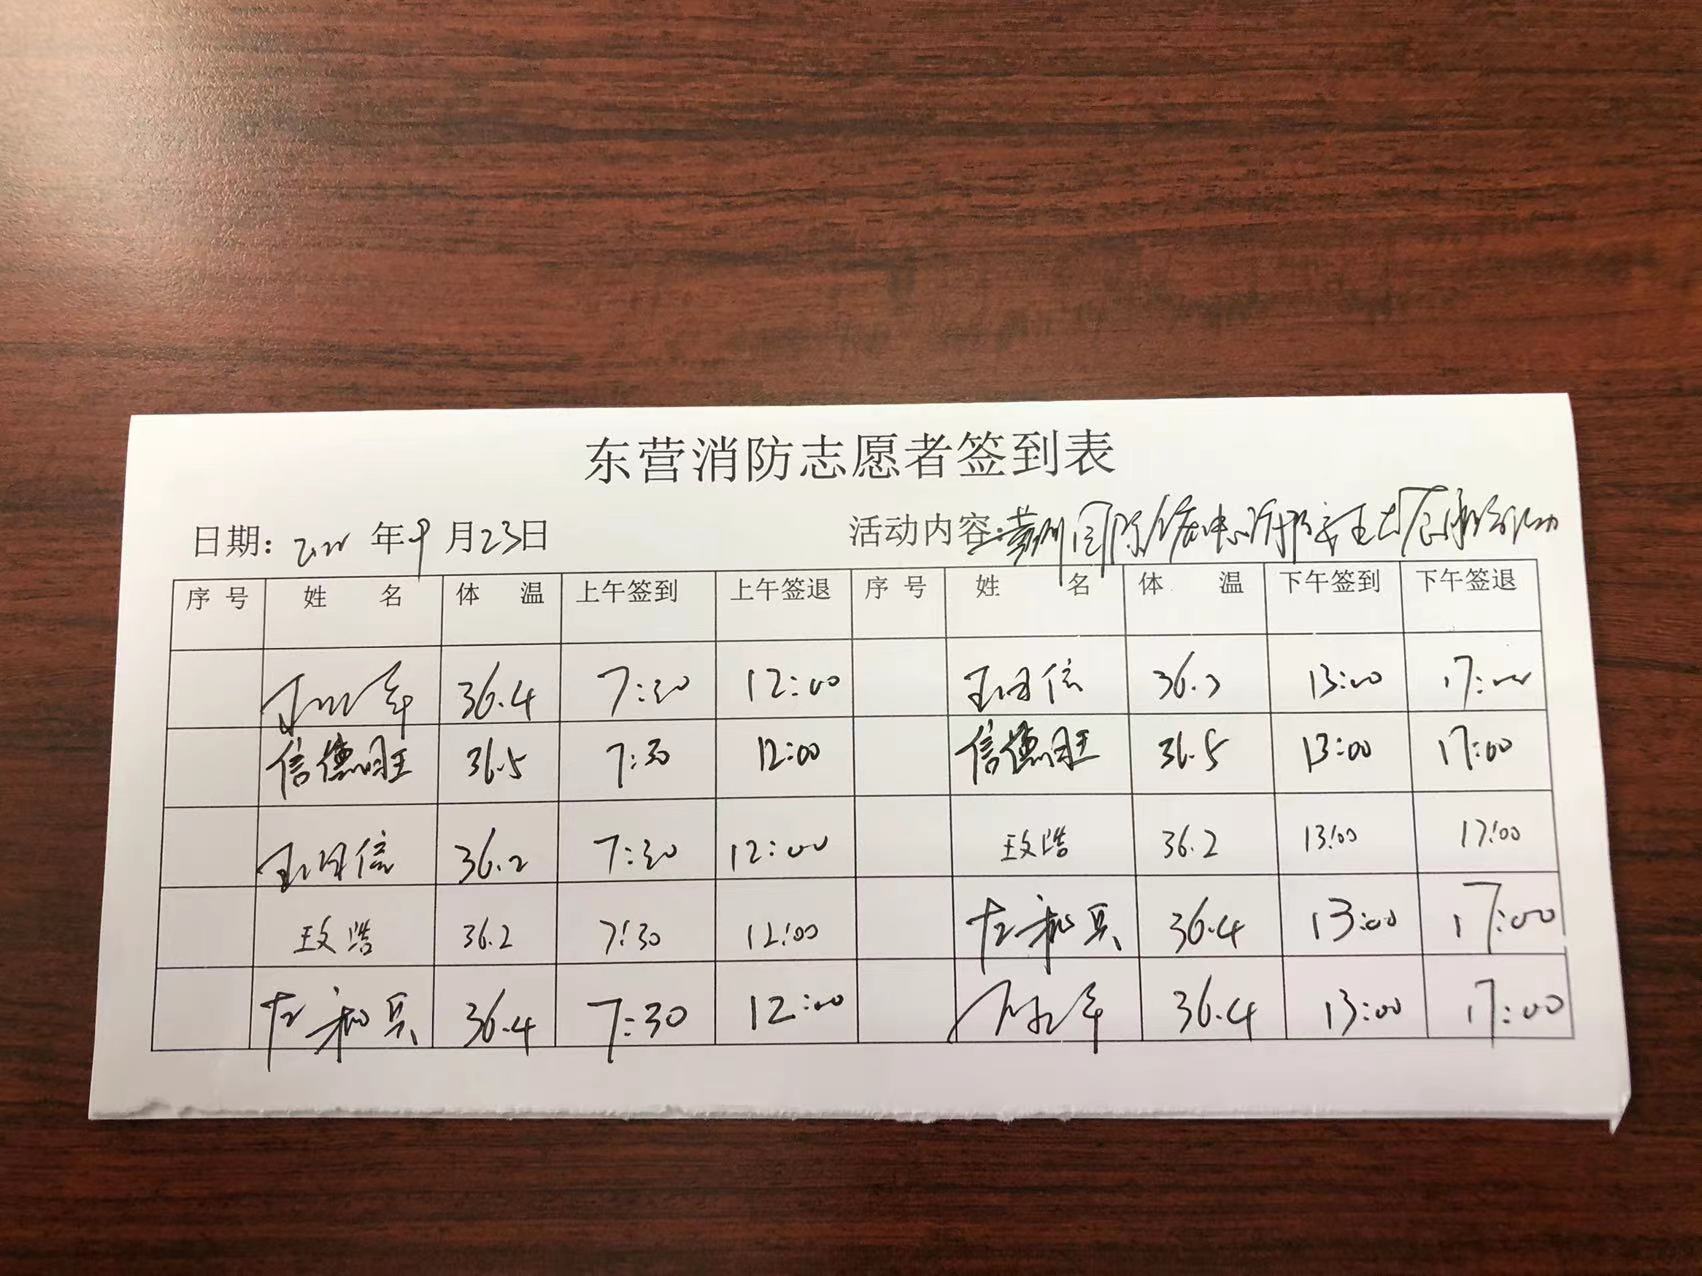 东营消防志愿者签到表
日期: 2022 年 9 月 23日 活动内容:
序号 姓名 体温 上午签到 上午签退 序号 姓名 体温 下午签到 下午签退
36.4 7:30 12:00 信 36.2 13:00 17:00
信德旺 36.5 7:30 12:00 信德旺 36.5 13:00 17:00
信 36.2 7:30 12:00 王文浩 36.2 13:00 17:00
王文浩 36.2 7:30 12:00 左和兵 36.4 13:00 17:00
左和兵 36.4 7:30 12:00 36.4 13:00 17:00